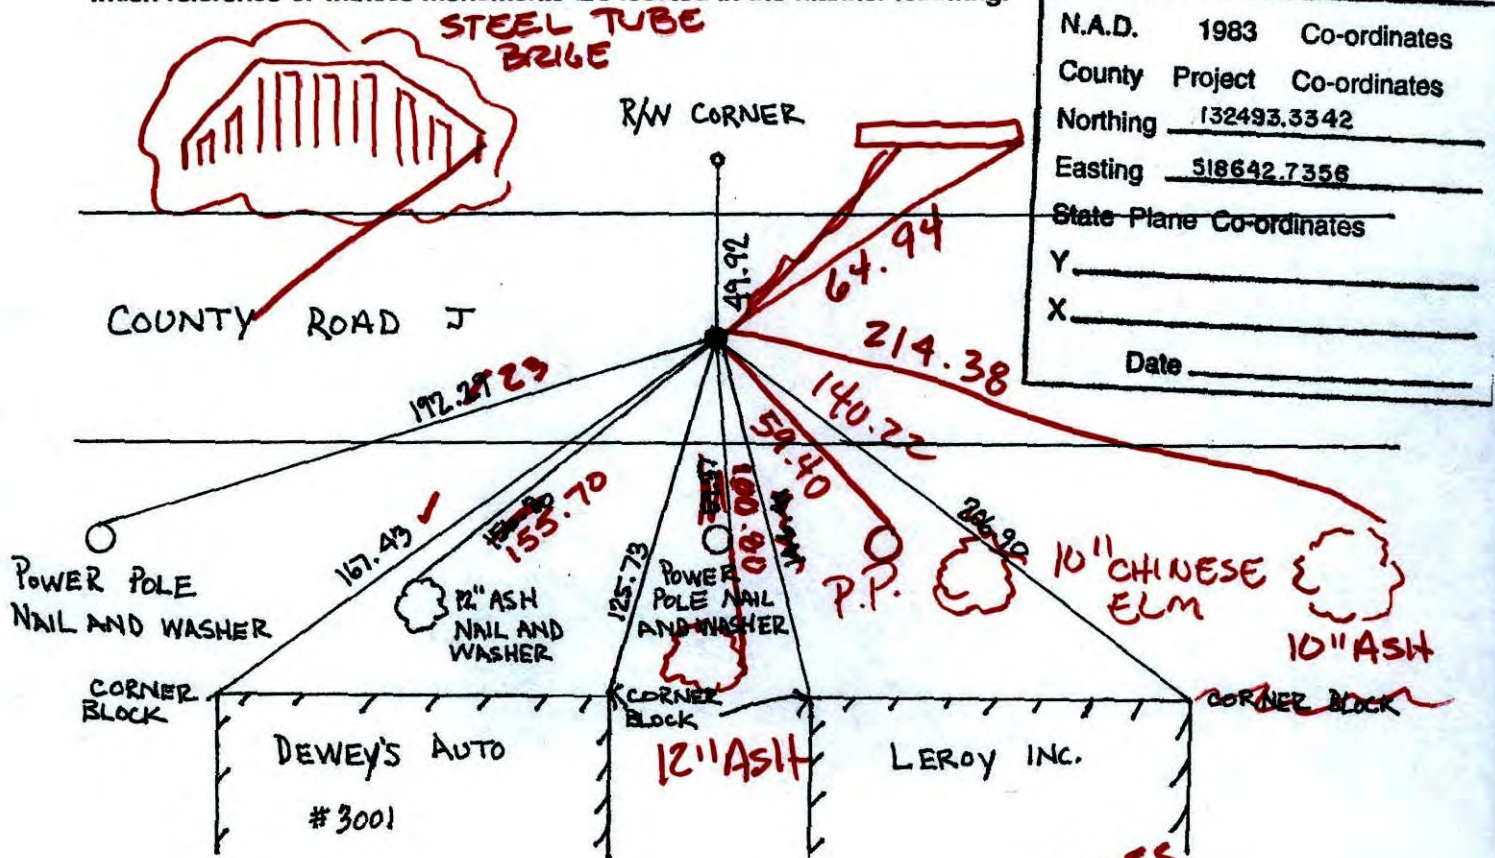 STEEL TUBE
BRIGE
R/W CORNER
N.A.D. 1983 Co-ordinates
County Project Co-ordinates
Northing 132493.3342
Easting 518642.7356
State Plane Co-ordinates
Y
X
Date
49.92
64.94
COUNTY ROAD J
214.38
192.29 23
140.22
59.40
167.43 ✓
155.70
125.73
100.80
206.90
POWER POLE
NAIL AND WASHER
12" ASH
NAIL AND
WASHER
POWER
POLE NAIL
AND WASHER
P.P.
10" CHINESE
ELM
10" ASH
CORNER
BLOCK
CORNER
BLOCK
CORNER BLOCK
12" ASH
DEWEY'S AUTO
#3001
LEROY INC.